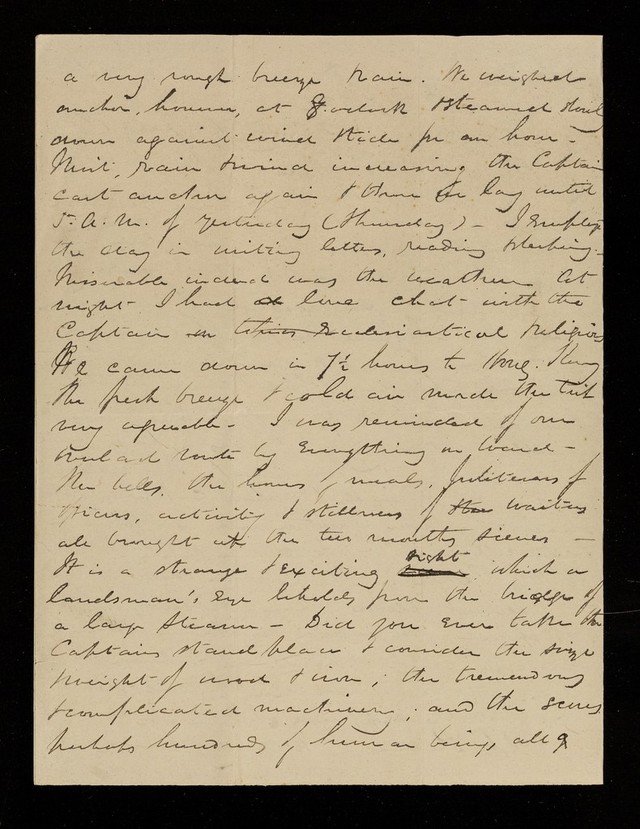 a very rough breeze & rain. We weighed
anchor, however, at 8. o'clock & steamed slowly
down against wind & tide for an hour -
Mist, rain & wind increasing the Captain
cast anchor again & there lay until
5. A. M. of yesterday (Thursday) - I employed
the day in writing letters, reading & sleeping -
Miserable indeed was the weather. At
night I had a long chat with the
Captain on Ecclesiastical religion
We came down in 7½ hours to Hong Kong
The fresh breeze & cold air made the trip
very agreeable - I was reminded of our
overland route by everything on board -
The bells, the hours of meals, politeness of
officers, activity & stillness of waiters
all brought up the two months scenes -
It is a strange & exciting sight which a
landsman's eye beholds from the bridge of
a large steamer - Did you ever take the
Captains stand place & consider the size
& weight of wood & iron; the tremendous
& complicated machinery; and the scores
perhaps hundreds of human beings all